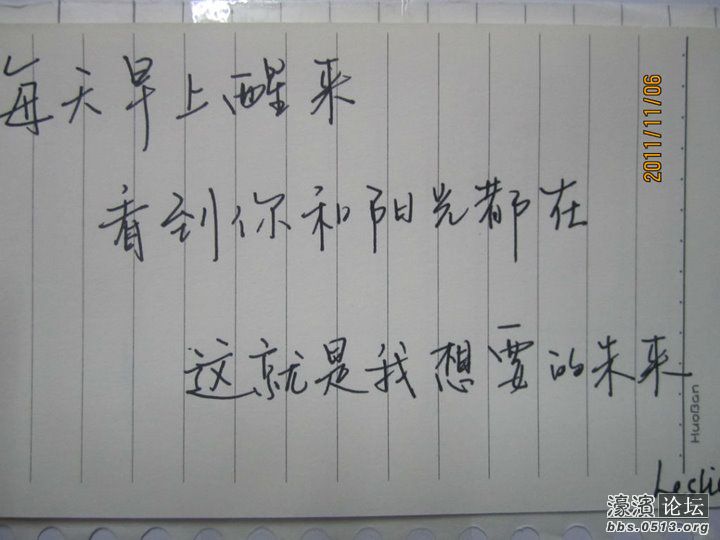 每天早上醒来
看到你和阳光都在
这就是我想要的未来
2011/11/06
HuoBan
Leslie
濠滨论坛
bbs.0513.org